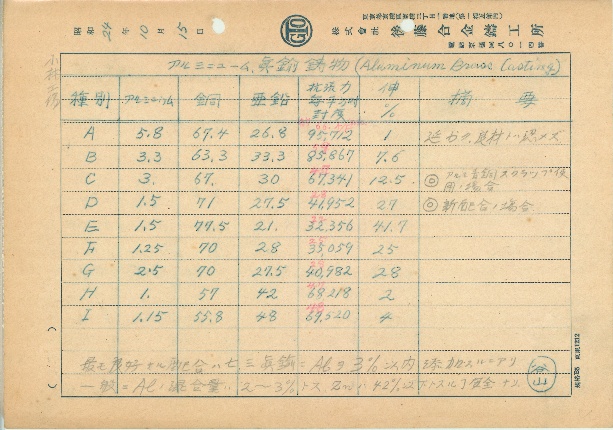 昭和 24 年 10 月 15 日
株式會社 後藤合金鑄工所
アルミニューム眞鍮鋳物 (Aluminum Brass Casting)
種別 アルミニウム 銅 亜鉛 抗張力 每平方吋封度 伸% 摘要
A 5.8 67.4 26.8 95,712 1
B 3.3 63.3 33.3 85,867 7.6
C 3. 67. 30 67,341 12.5 ◎ アルミ青銅スクラップ使用ノ場合
D 1.5 71 27.5 41,952 27 ◎ 新配合ノ場合
E 1.5 77.5 21. 32,356 41.7
F 1.25 70 28 35,059 25
G 2.5 70 27.5 40,982 28
H 1. 57 42 68,218 2
I 1.15 55.8 48 69,520 4
最モ良好ナル配合ハ七三眞鍮ニAlヲ3%以内添加スルニアリ
一般ニAlノ混合量ハ2〜3%トス Znハ42%以下トスル